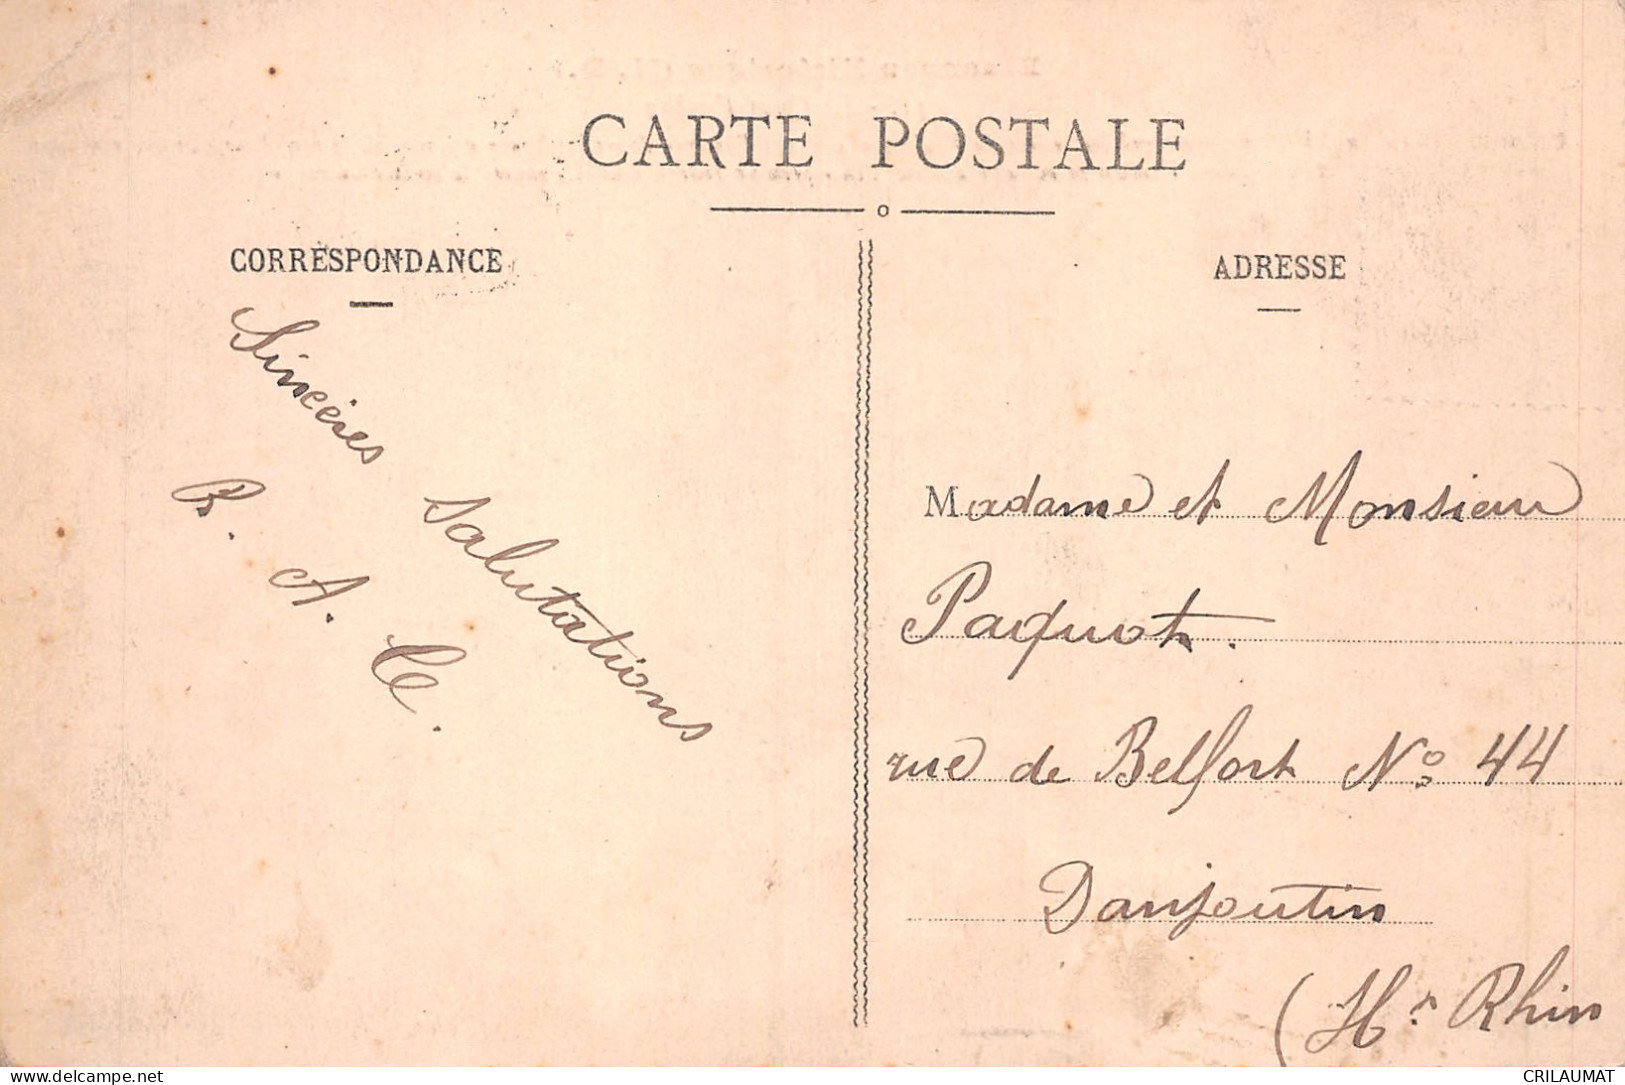 CARTE POSTALE
CORRESPONDANCE
ADRESSE
Sincères salutations
B. A. C.
Madame et Monsieur
Paquot.
rue de Belfort No 44
Danjoutin
(Ht Rhin
CRILAUMAT